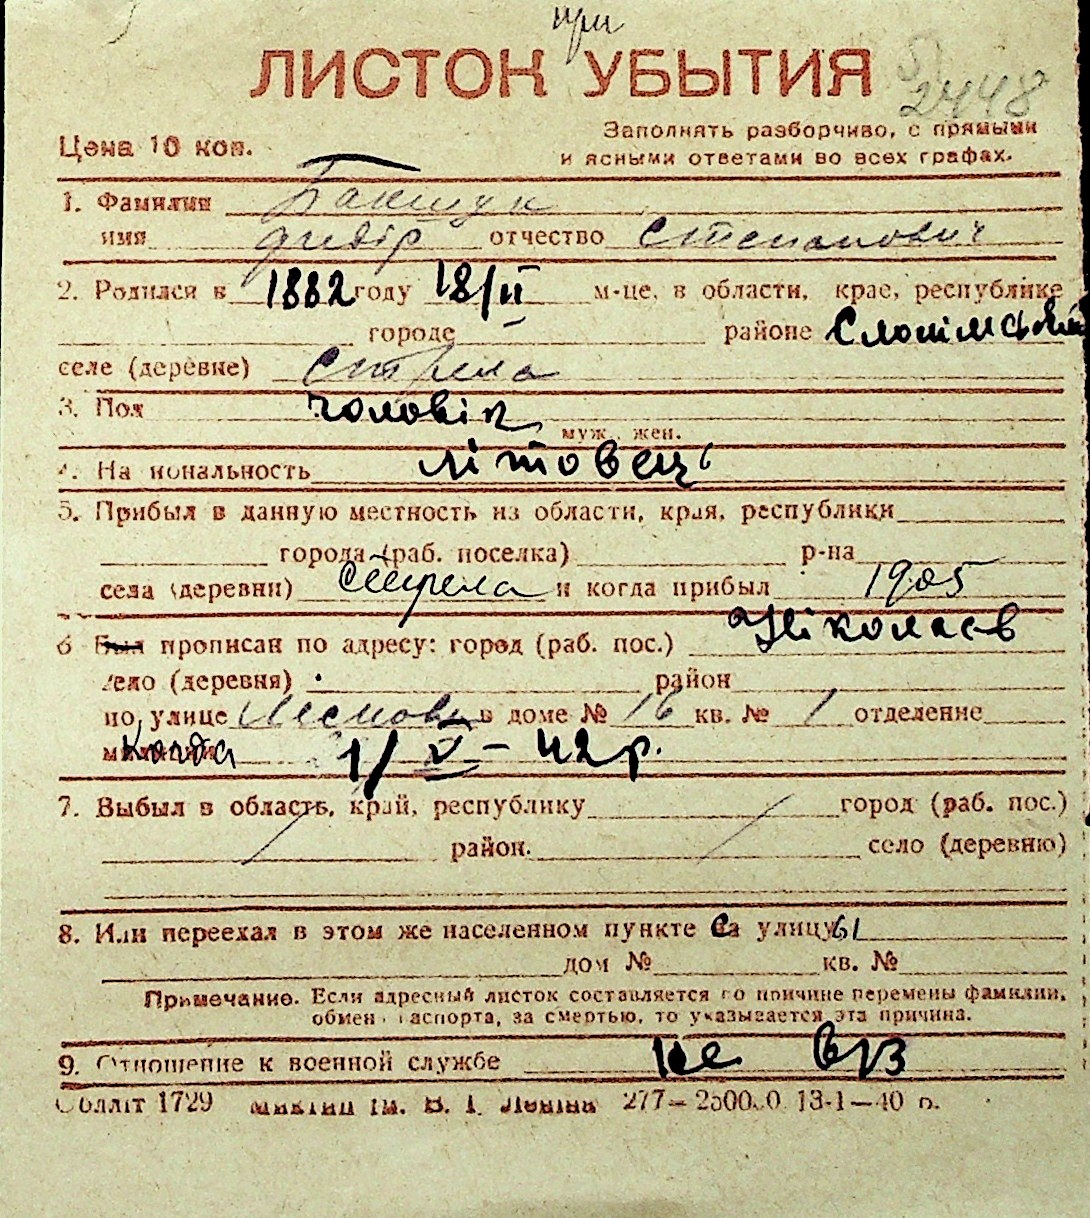 при
ЛИСТОК УБЫТИЯ
2448
Цена 10 коп.
Заполнять разборчиво, с прямыми
и ясными ответами во всех графах.
1. Фамилия Бакшук
имя Федір отчество Степанович
2. Родился в 1882 году 18/II м-це, в области, крае, республике
городе — районе Слонімський
селе (деревне) Стрела
3. Пол чоловік
муж., жен.
4. На иональность літовець
5. Прибыл в данную местность из области, края, республики
города (раб. поселка) р-на
села (деревни) Стрела и когда прибыл 1905
6 Был прописан по адресу: город (раб. пос.) Ніколаєв
село (деревня) район
по улице в доме № 16 кв. № 1 отделение
милиции Когда 1/V – 42 р.
7. Выбыл в область, край, республику город (раб. пос.)
район. село (деревню)
8. Или переехал в этом же населенном пункте са улицы
дом № кв. №
Примечание. Если адресный листок составляется по причине перемены фамилии,
обмен паспорта, за смертью, то указывается эта причина.
9. Отношение к военной службе не в/з
Обллiт 1729 ім. В. І. Леніна 277—25000 0 13-1—40 р.